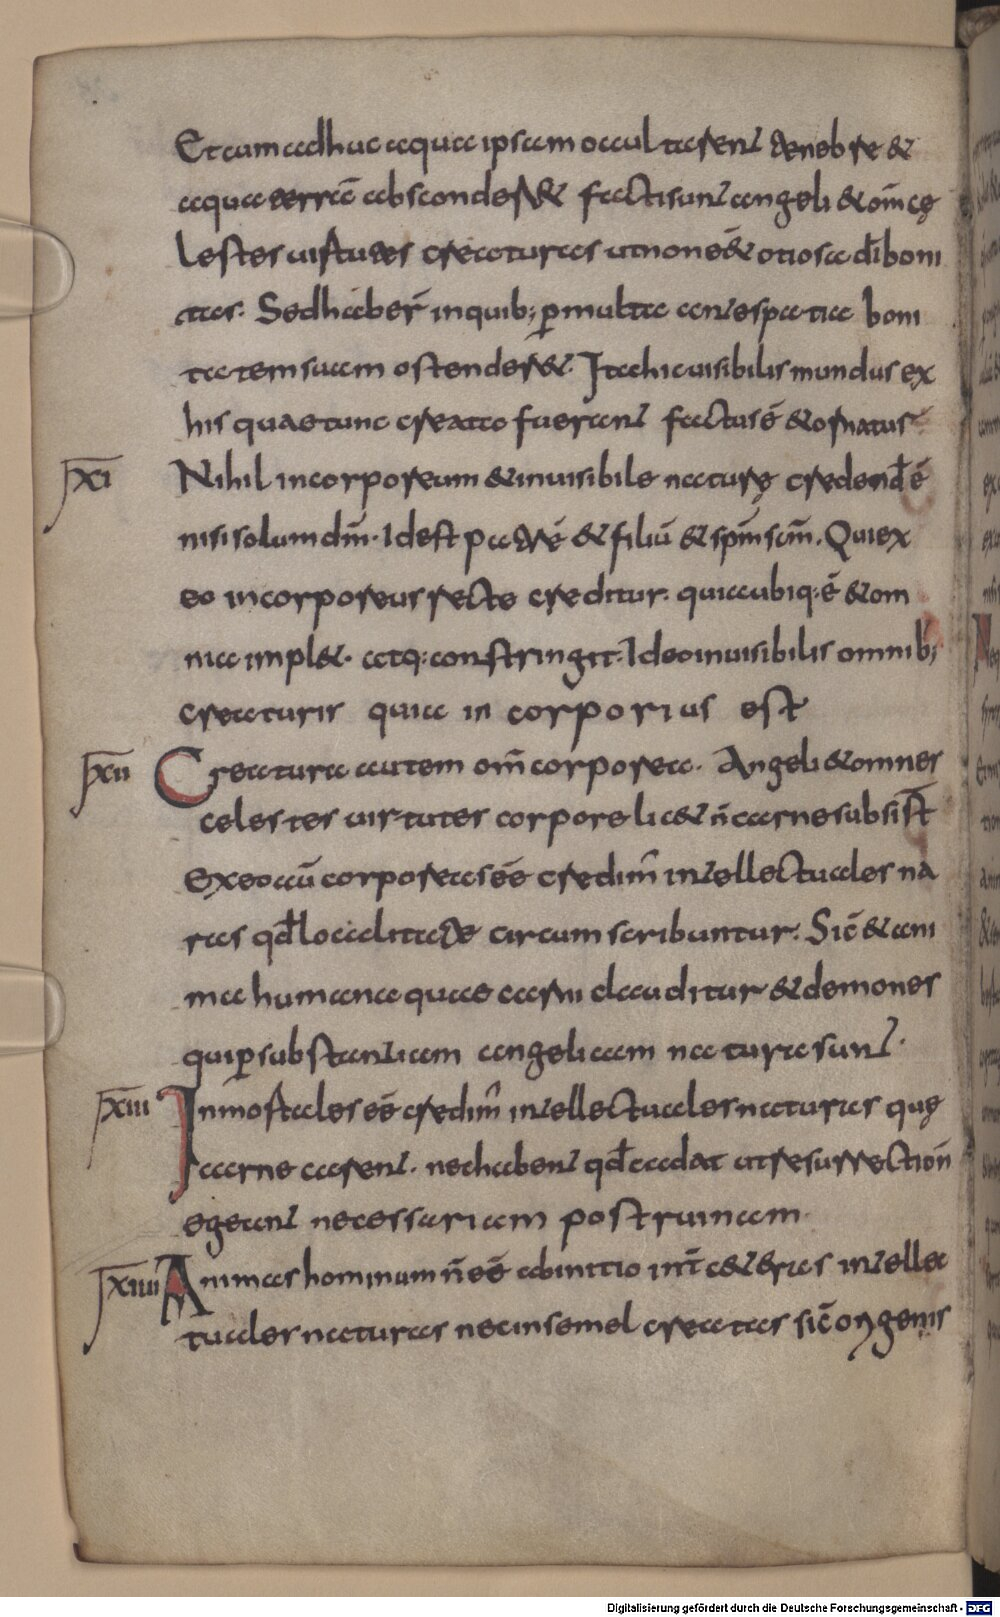 Et cum adhuc aqua ipsam occultarent tenebre &
aqua terrā absconder& facti sunt angeli & om̄s cę
lestes uirtutes creaturas ut non eē& otiosa dī boni
tas. Sed haber& in quib; ꝑ multa ante spatia boni
tatem suam ostender&. Ita hic uisibilis mundus ex
his quae tunc creata fuerant factus ē & ornatus
xi Nihil incorporeum & inuisibile naturę credend̄ ē
nisi solum dm̄. Id est patrē & filiū & spm̄ scm̄. Qui ex
eo incorporeus recte creditur. quia ubiq; ē & om
nia impl&. atq; constringit. Ideo inuisibilis omnib;
creaturis quia incorporius est
xii Creatura autem om̄ corporea. Angeli & omnes
celestes uirtutes corporeli c& n̄ carne subsist̄
Ex eo aū corporeas eē credim̄ intellectuales na
ras qd̄ localitate circumscribuntur. Sic̄ & ani
ma humana quae carni clauditur & demones
qui ꝑ substantiam angelicam natura sunt.
xiii Inmortales eē credim̄ intellectuales naturas quę
carne carent. nec habent qd̄ cadat ut resurrection̄
egeant necessariam post ruinam
xiiii Animas hominum n̄ eē ab initio int̄ c&eras intellec
tuales naturas nec insemel creatas sic̄ origenis
Digitalisierung gefördert durch die Deutsche Forschungsgemeinschaft - DFG